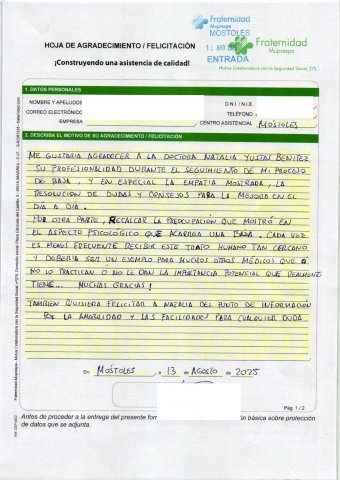 Fraternidad
Muprespa
MOSTOLES
ENTRADA
Fraternidad
Muprespa
Mutua Colaboradora con la Seguridad Social, 275
HOJA DE AGRADECIMIENTO / FELICITACIÓN
¡Construyendo una asistencia de calidad!
1. DATOS PERSONALES
NOMBRE Y APELLIDOS
D.N.I./N.I.E.
CORREO ELECTRÓNICO
TELÉFONO
EMPRESA
CENTRO ASISTENCIAL MOSTOLES
2. DESCRIBA EL MOTIVO DE SU AGRADECIMIENTO / FELICITACIÓN
ME GUSTARIA AGRADECER A LA DOCTORA NATALIA YUSTAS BENITEZ
SU PROFESIONALIDAD DURANTE EL SEGUIMIENTO DE MI PROCESO
DE BAJA, Y EN ESPECIAL LA EMPATIA MOSTRADA, LA
RESOLUCION DE DUDAS Y CONSEJOS PARA LA MEJORA EN EL
DIA A DIA.
POR OTRA PARTE, RECALCAR LA PREOCUPACION QUE MOSTRÓ EN
EL ASPECTO PSICOLOGICO QUE ACARREA UNA BAJA. CADA VEZ
ES MENOS FRECUENTE RECIBIR ESTE TRATO HUMANO TAN CERCANO
Y DEBERIA SER UN EJEMPLO PARA MUCHOS OTROS MÉDICOS QUE O
NO LO PRACTICAN O NO LE DAN LA IMPORTANCIA POTENCIAL QUE REALMENTE
TIENE... MUCHAS GRACIAS!
TAMBIEN QUISIERA FELICITAR A NATALIA DEL PUNTO DE INFORMACIÓN
POR LA AMABILIDAD Y LAS FACILIDADES PARA CUALQUIER DUDA.
En MOSTOLES, a 13 de AGOSTO de 2025
Pág. 1 / 2
Antes de proceder a la entrega del presente form
ón básica sobre protección
de datos que se adjunta.